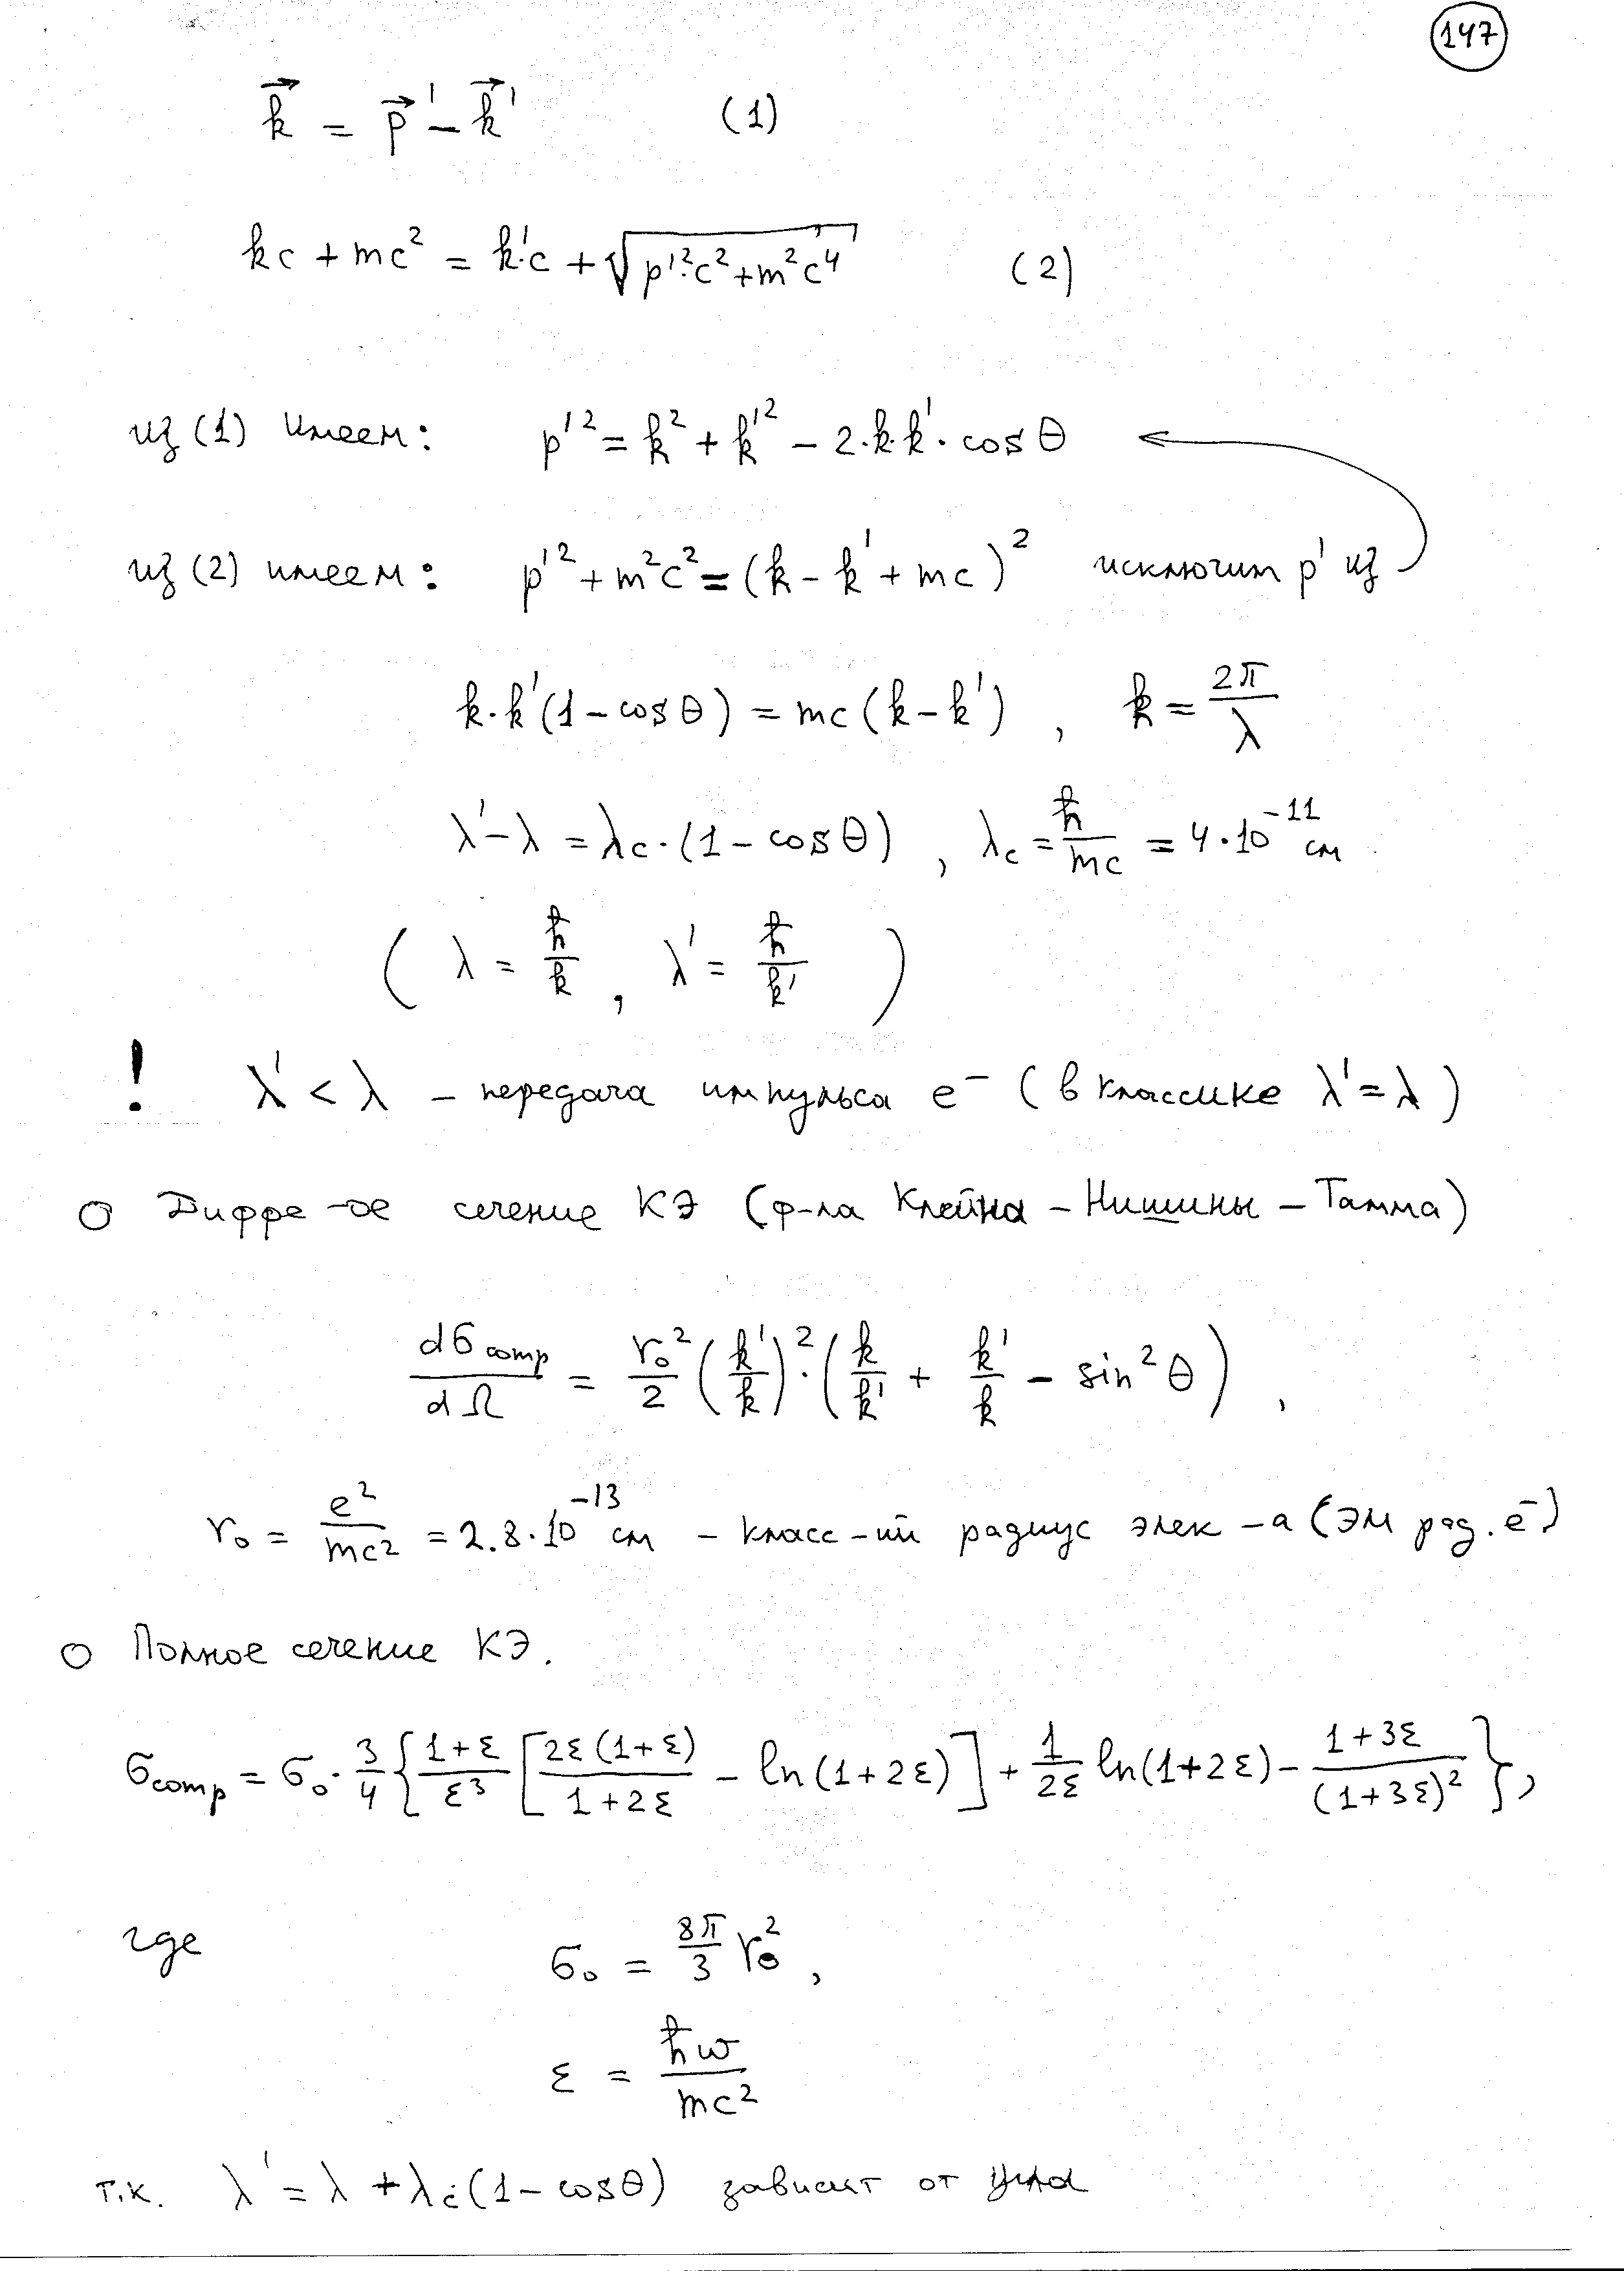 147
k⃗ = p⃗′ − k⃗′ (1)
kc + mc² = k′c + √(p′²·c² + m²c⁴) (2)
из (1) имеем: p′² = k² + k′² − 2·k·k′·cos θ
из (2) имеем: p′² + m²c² = (k − k′ + mc)² исключим p′ из
k·k′(1 − cos θ) = mc(k − k′), k = 2π/λ
λ′ − λ = λc·(1 − cos θ), λc = ħ/mc = 4·10⁻¹¹ см
(λ = ħ/k, λ′ = ħ/k′)
! λ′ < λ – передача импульса e⁻ (в классике λ′ = λ)
○ Диффе-ое сечение КЭ (ф-ла Клейна – Нишины – Тамма)
dσcomp/dΩ = r₀²/2 (k′/k)²·(k/k′ + k′/k − sin²θ),
r₀ = e²/mc² = 2.8·10⁻¹³ см – класс-ий радиус элек-а (ЭМ рад. e⁻)
○ Полное сечение КЭ.
σcomp = σ₀·3/4{(1+ε)/ε³[2ε(1+ε)/(1+2ε) − ln(1+2ε)] + 1/2ε ln(1+2ε) − (1+3ε)/(1+3ε)²},
где σ₀ = 8π/3 r₀²,
ε = ħω/mc²
т.к. λ′ = λ + λc(1 − cosθ) зависит от угла